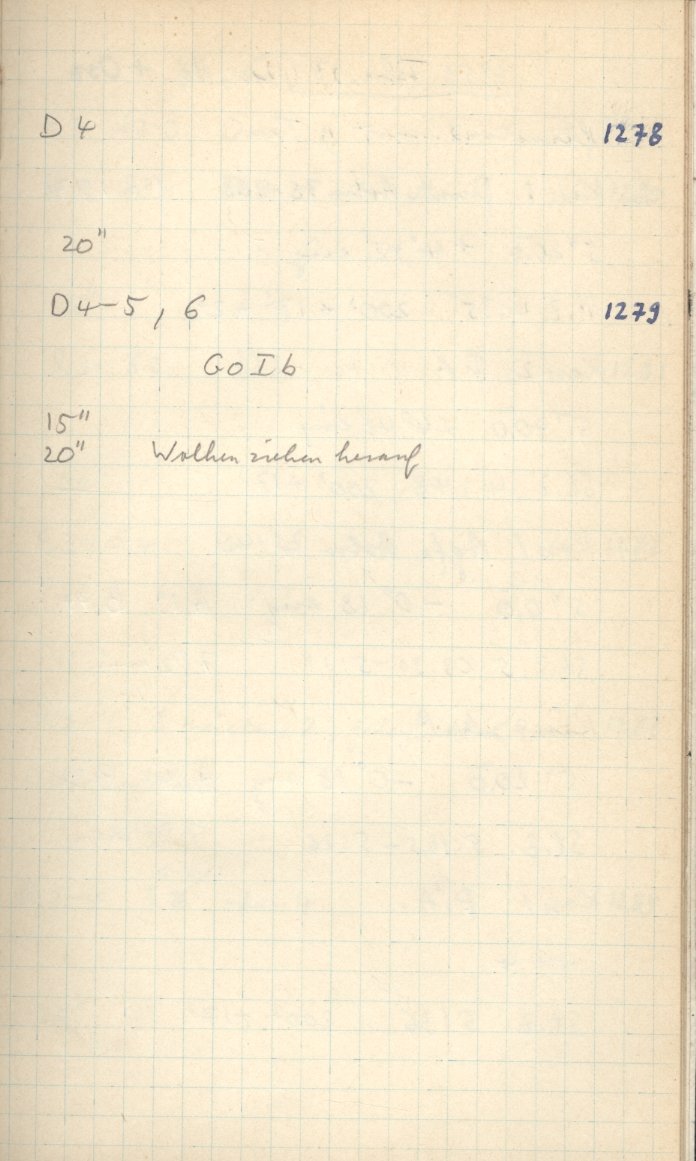 D 4 1278
20"
D 4-5, 6 1279
GoIb
15"
20" Wolken ziehen herauf